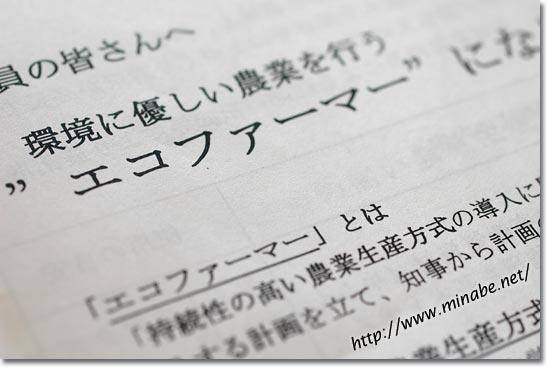 員の皆さんへ
環境に優しい農業を行う
”エコファーマー”にな
「エコファーマー」とは
「持続性の高い農業生産方式の導入に
する計画を立て、知事から計画の
業生産方式
http://www.minabe.net/